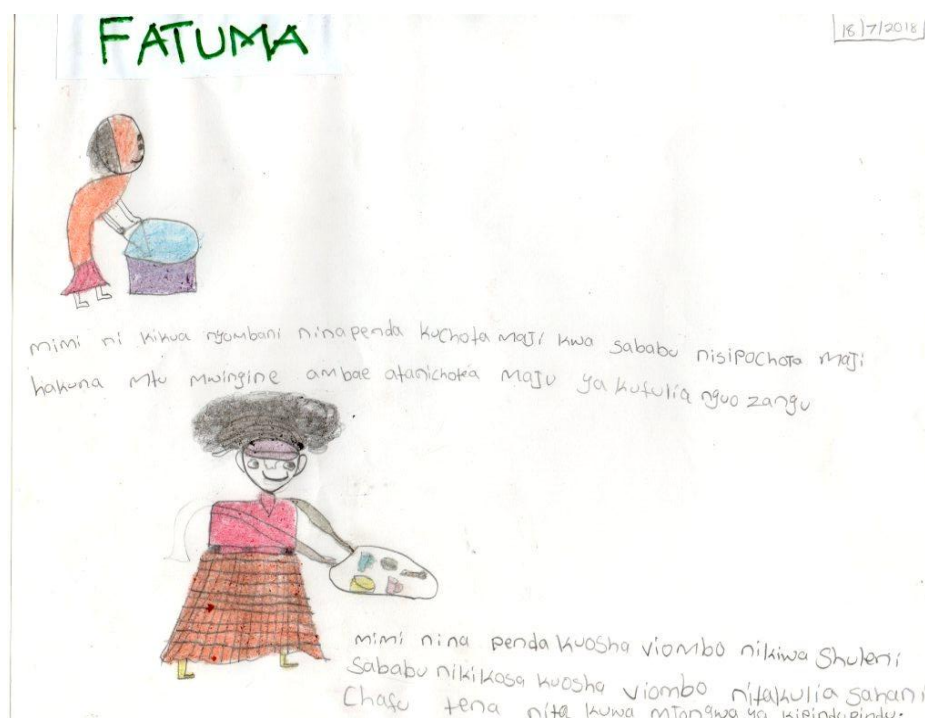 FATUMA
18/7/2018
mimi ni kikua nyumbani ninapenda kuchota maji kwa sababu nisipochota maji
hakuna mtu mwingine ambae atanichotea maju ya kufulia nguo zangu
mimi nina penda kuosha viombo nikiwa shuleni
sababu nikikosa kuosha viombo nitakulia sahani
chafu tena nita kuwa mgonjwa ya kipindupindu.